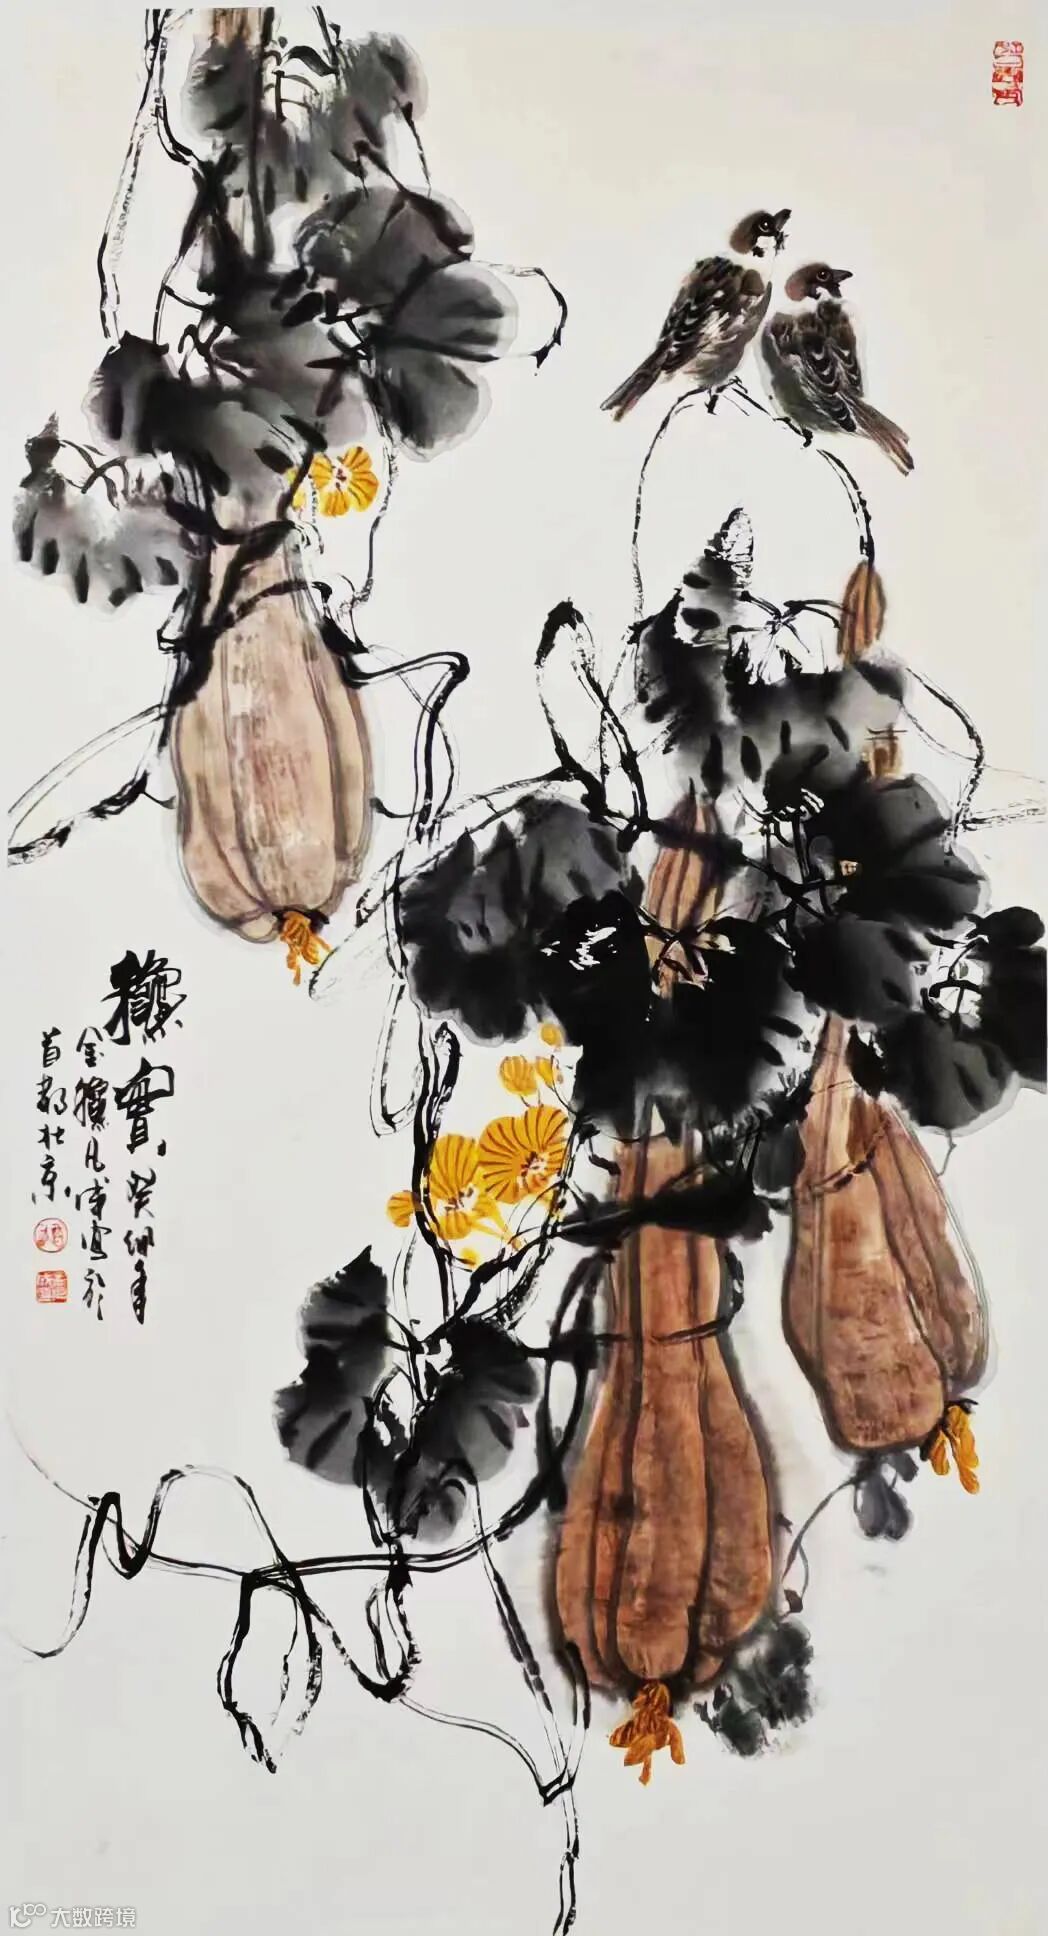 秋實
癸卯年
金秋凡成寫於
首都北京
大数跨境